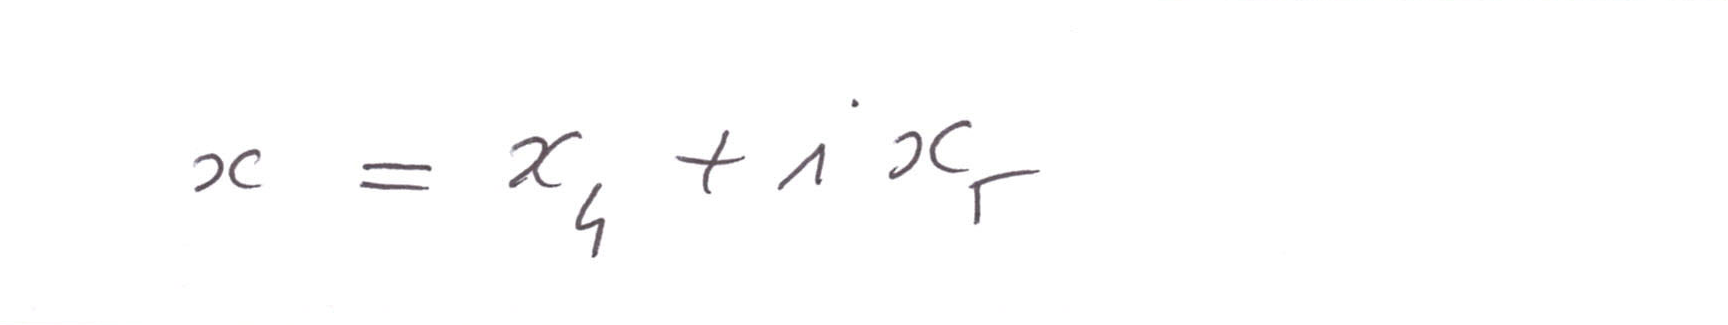 x = x₄ + i x_Γ